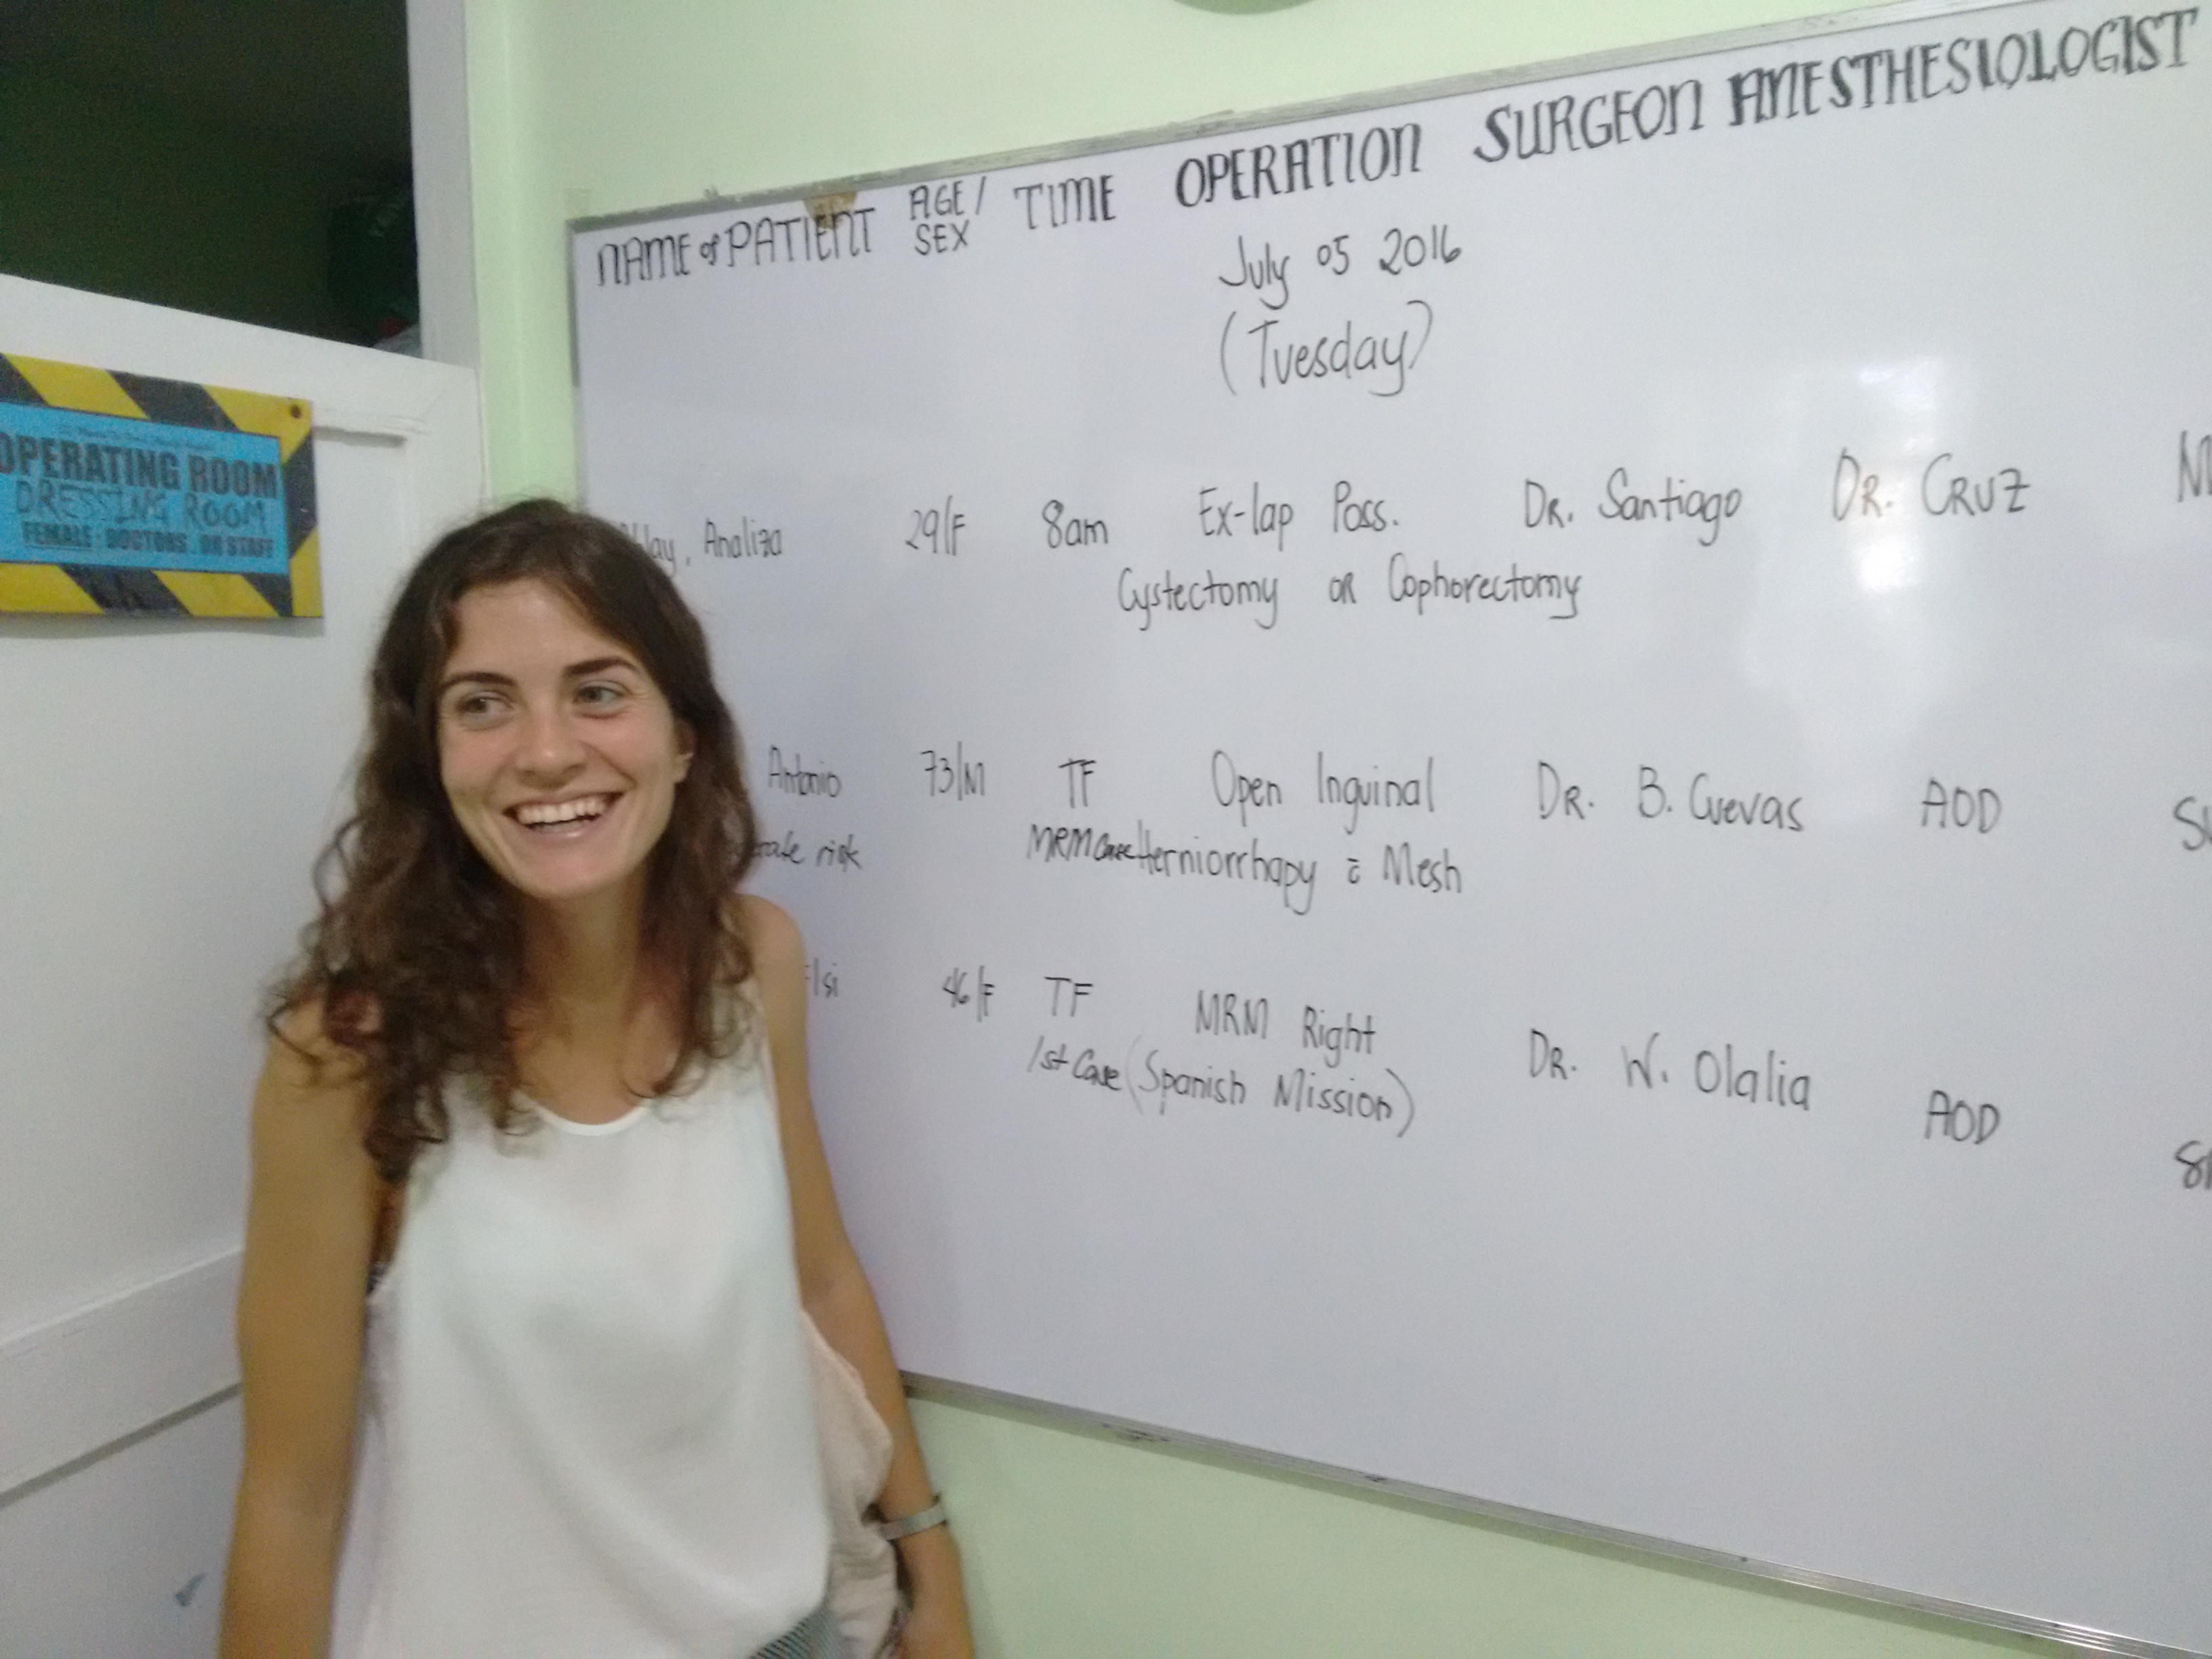 NAME of PATIENT AGE/SEX TIME OPERATION SURGEON ANESTHESIOLOGIST
July 05 2016
(Tuesday)
Analiza 29/F 8am Ex-lap Poss. Dr. Santiago DR. CRUZ
Cystectomy OR Oophorectomy
Antonio 73/M TF Open Inguinal DR. B. Cuevas AOD
risk MRM Case Herniorrhapy c̄ Mesh
46/F TF MRM Right DR. W. Olalia AOD
1st Case (Spanish Mission)
OPERATING ROOM
DRESSING ROOM
FEMALE . DOCTORS . OR STAFF